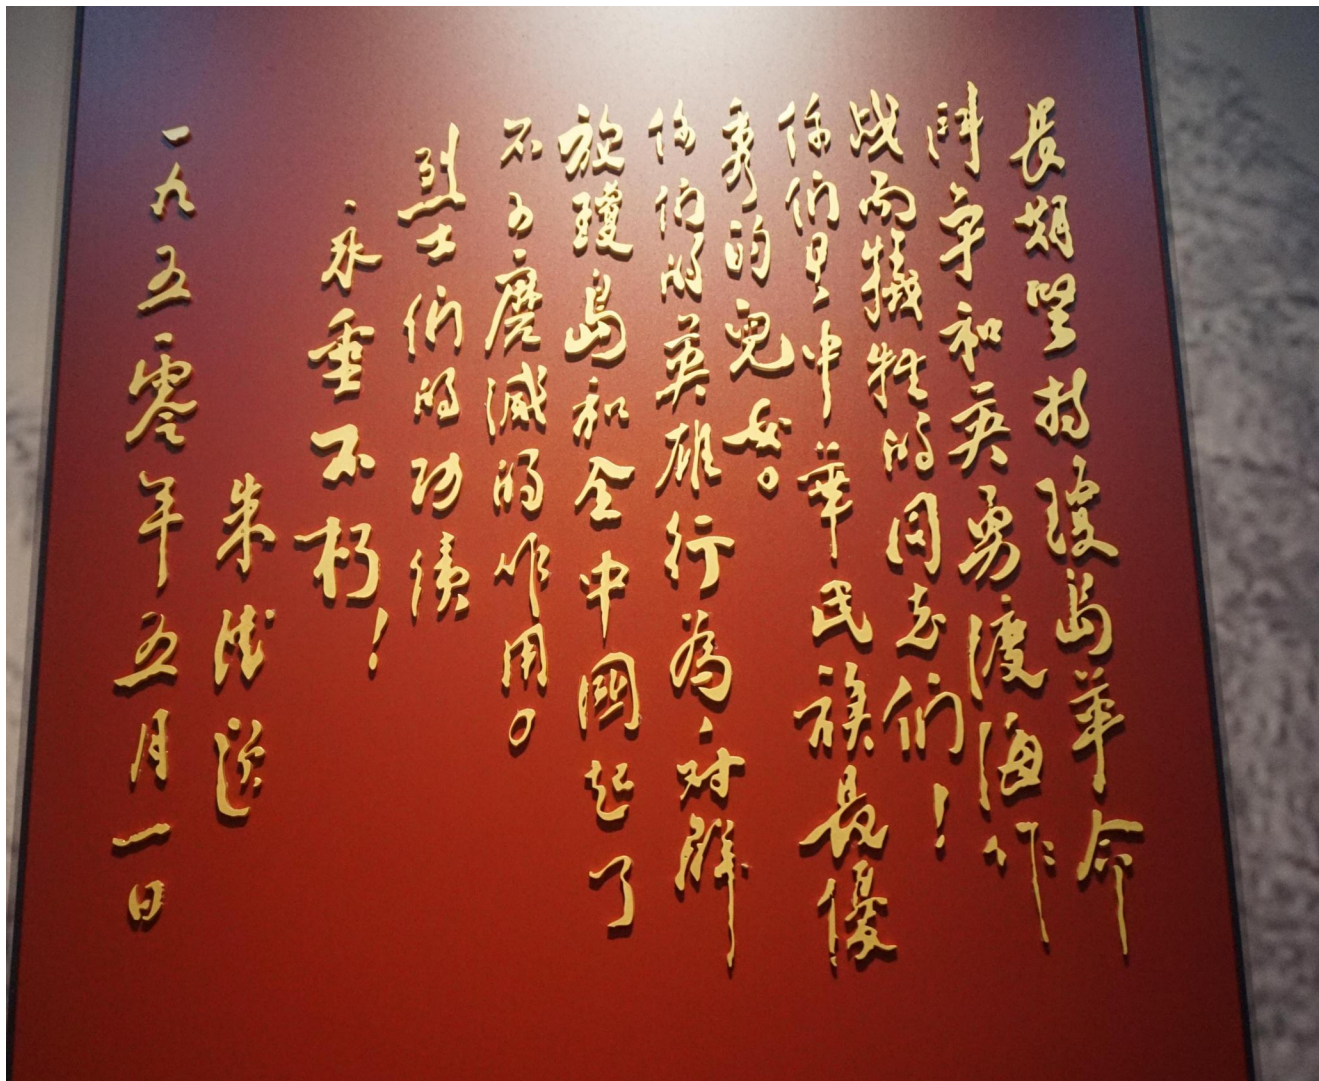 長期坚持瓊島革命
鬥争和英勇渡海作
战而犧牲的同志们！
你们是中華民族最優
秀的兒女。
你们的英雄行為，对解
放瓊島和全中國起了
不可磨滅的作用。
烈士们的功绩
永垂不朽！
朱德題
一九五零年五月一日